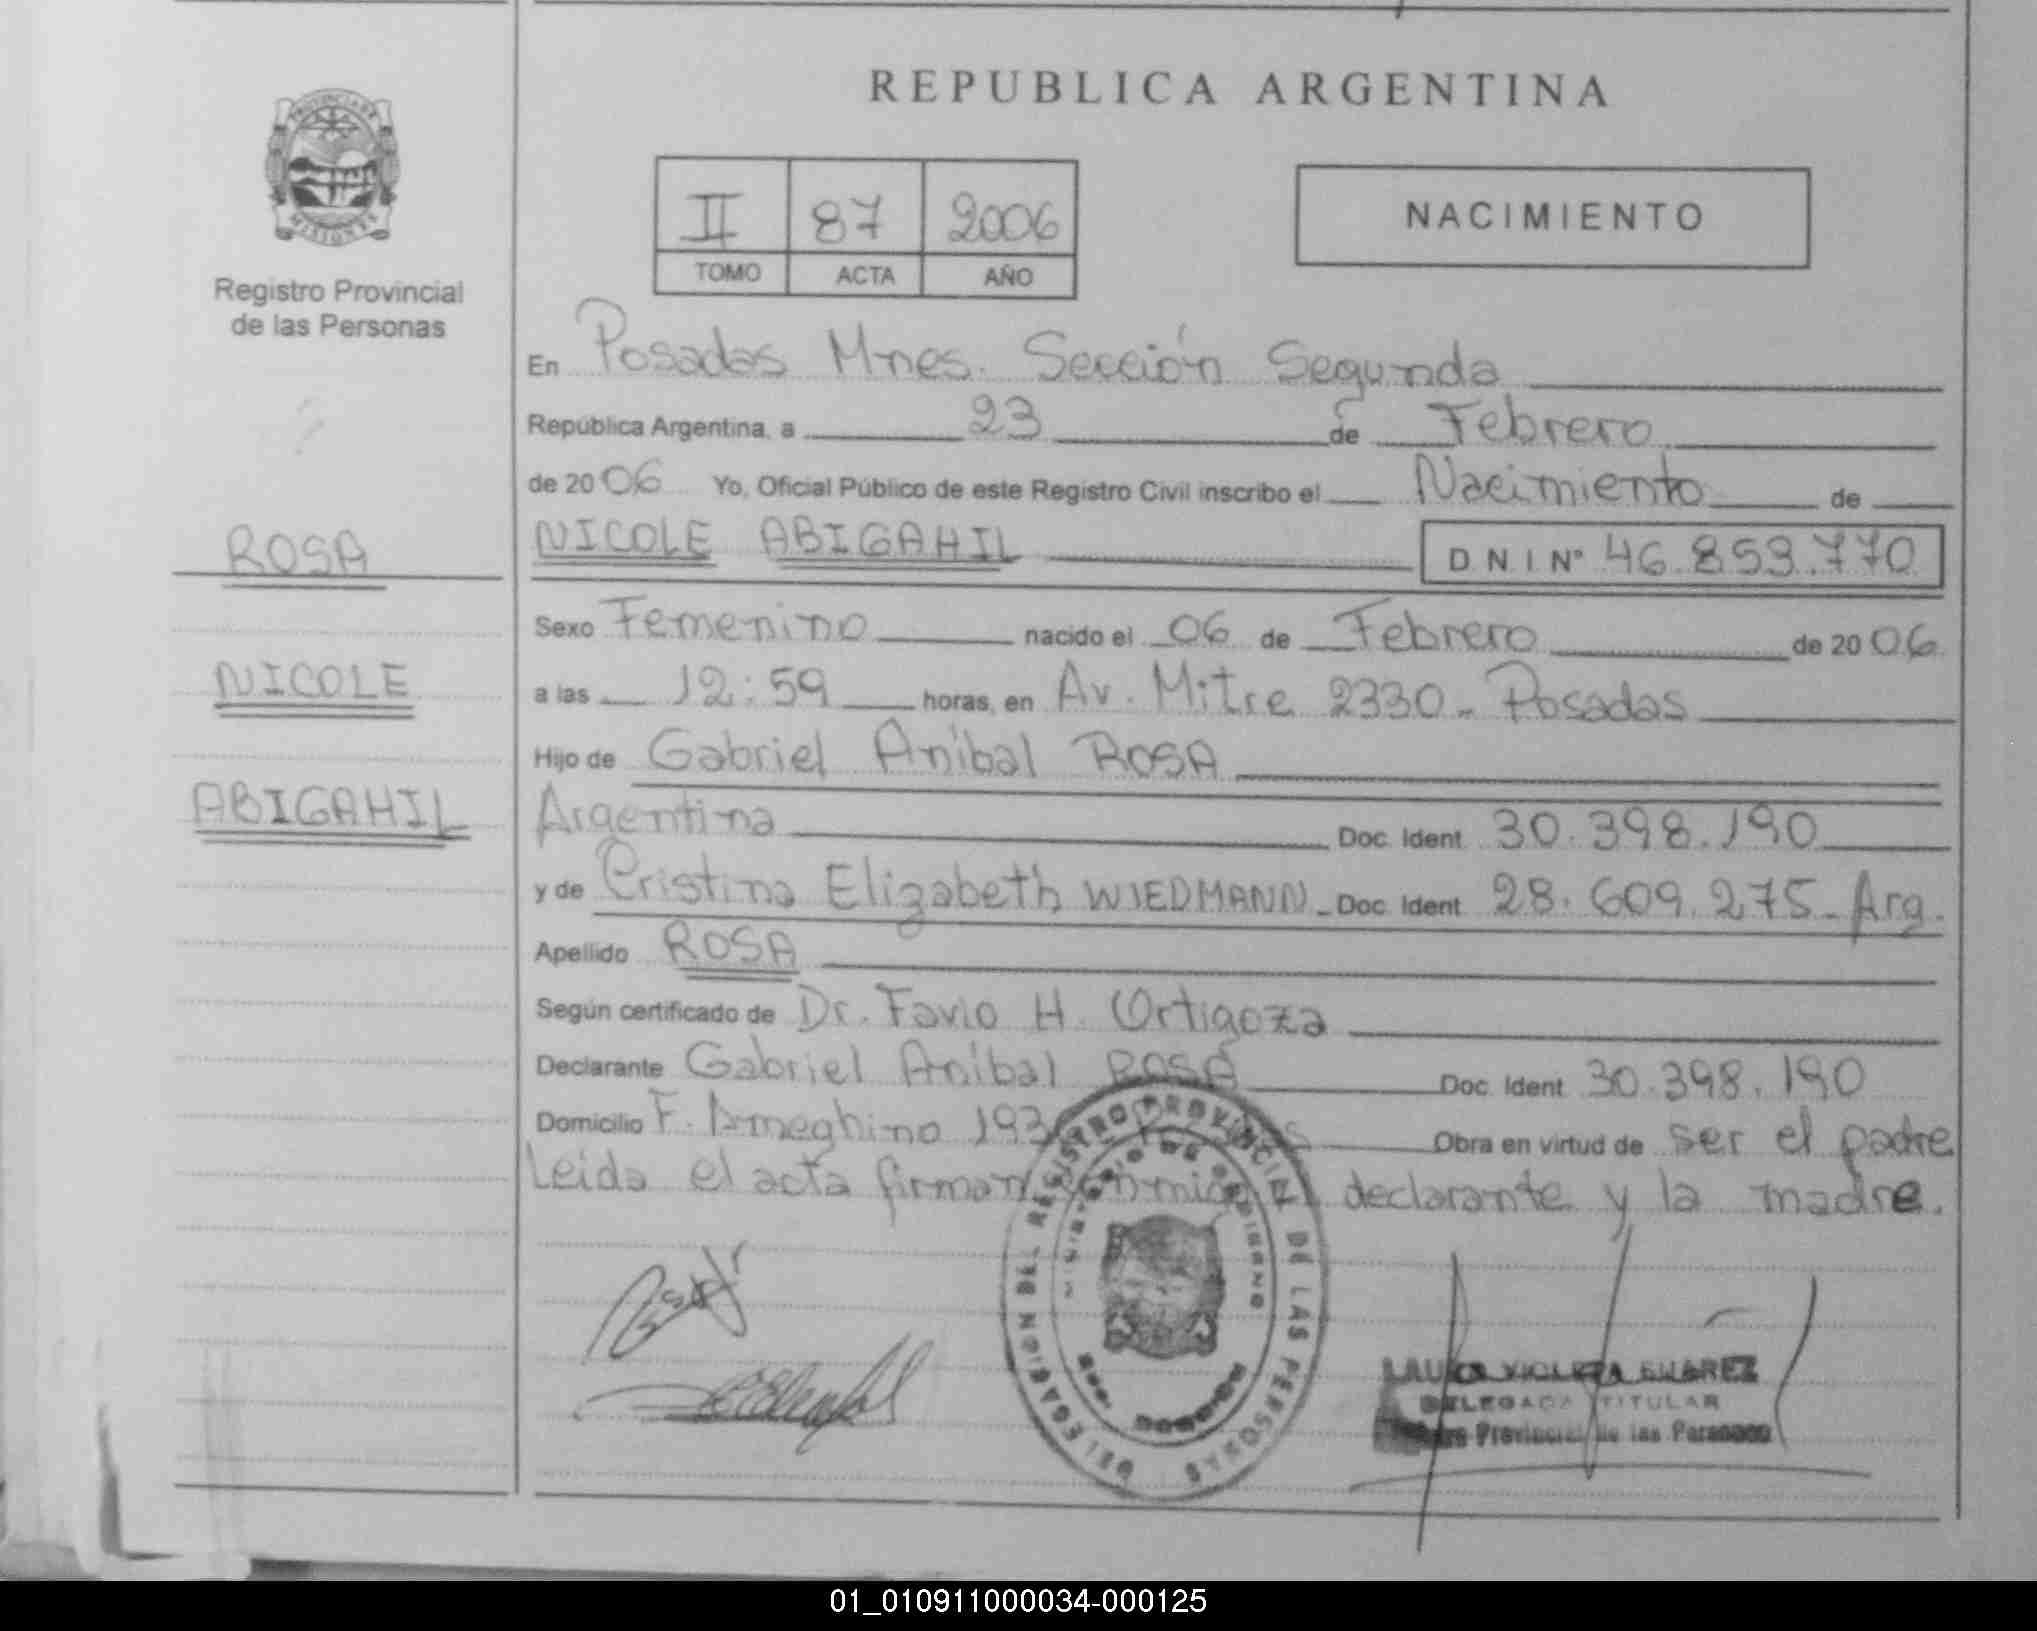 REPUBLICA ARGENTINA
PROVINCIA DE
MISIONES
Registro Provincial
de las Personas
II 87 2006
TOMO ACTA AÑO
NACIMIENTO
En Posadas Mnes. Sección Segunda
República Argentina, a 23 de Febrero
de 2006 Yo, Oficial Público de este Registro Civil inscribo el Nacimiento de
ROSA
NICOLE ABIGAHIL D.N.I.Nº 46.859.770
Sexo Femenino nacido el 06 de Febrero de 2006.
NICOLE
a las 12:59 horas, en Av. Mitre 2330 - Posadas
Hijo de Gabriel Aníbal ROSA
ABIGAHIL
Argentina Doc. Ident. 30.398.190
y de Cristina Elizabeth WIEDMANN - Doc. Ident. 28.609.275 - Arg.
Apellido ROSA
Según certificado de Dr. Favio H. Ortigoza
Declarante Gabriel Aníbal ROSA Doc. Ident. 30.398.190
Domicilio F. Ameghino Obra en virtud de ser el padre
Leída el acta firman declarante y la madre.
DELEGACION DEL REGISTRO PROVINCIAL DE LAS PERSONAS
LAURA VIOLETA SUAREZ
DELEGADA TITULAR
Provincial de las Personas
01_010911000034-000125